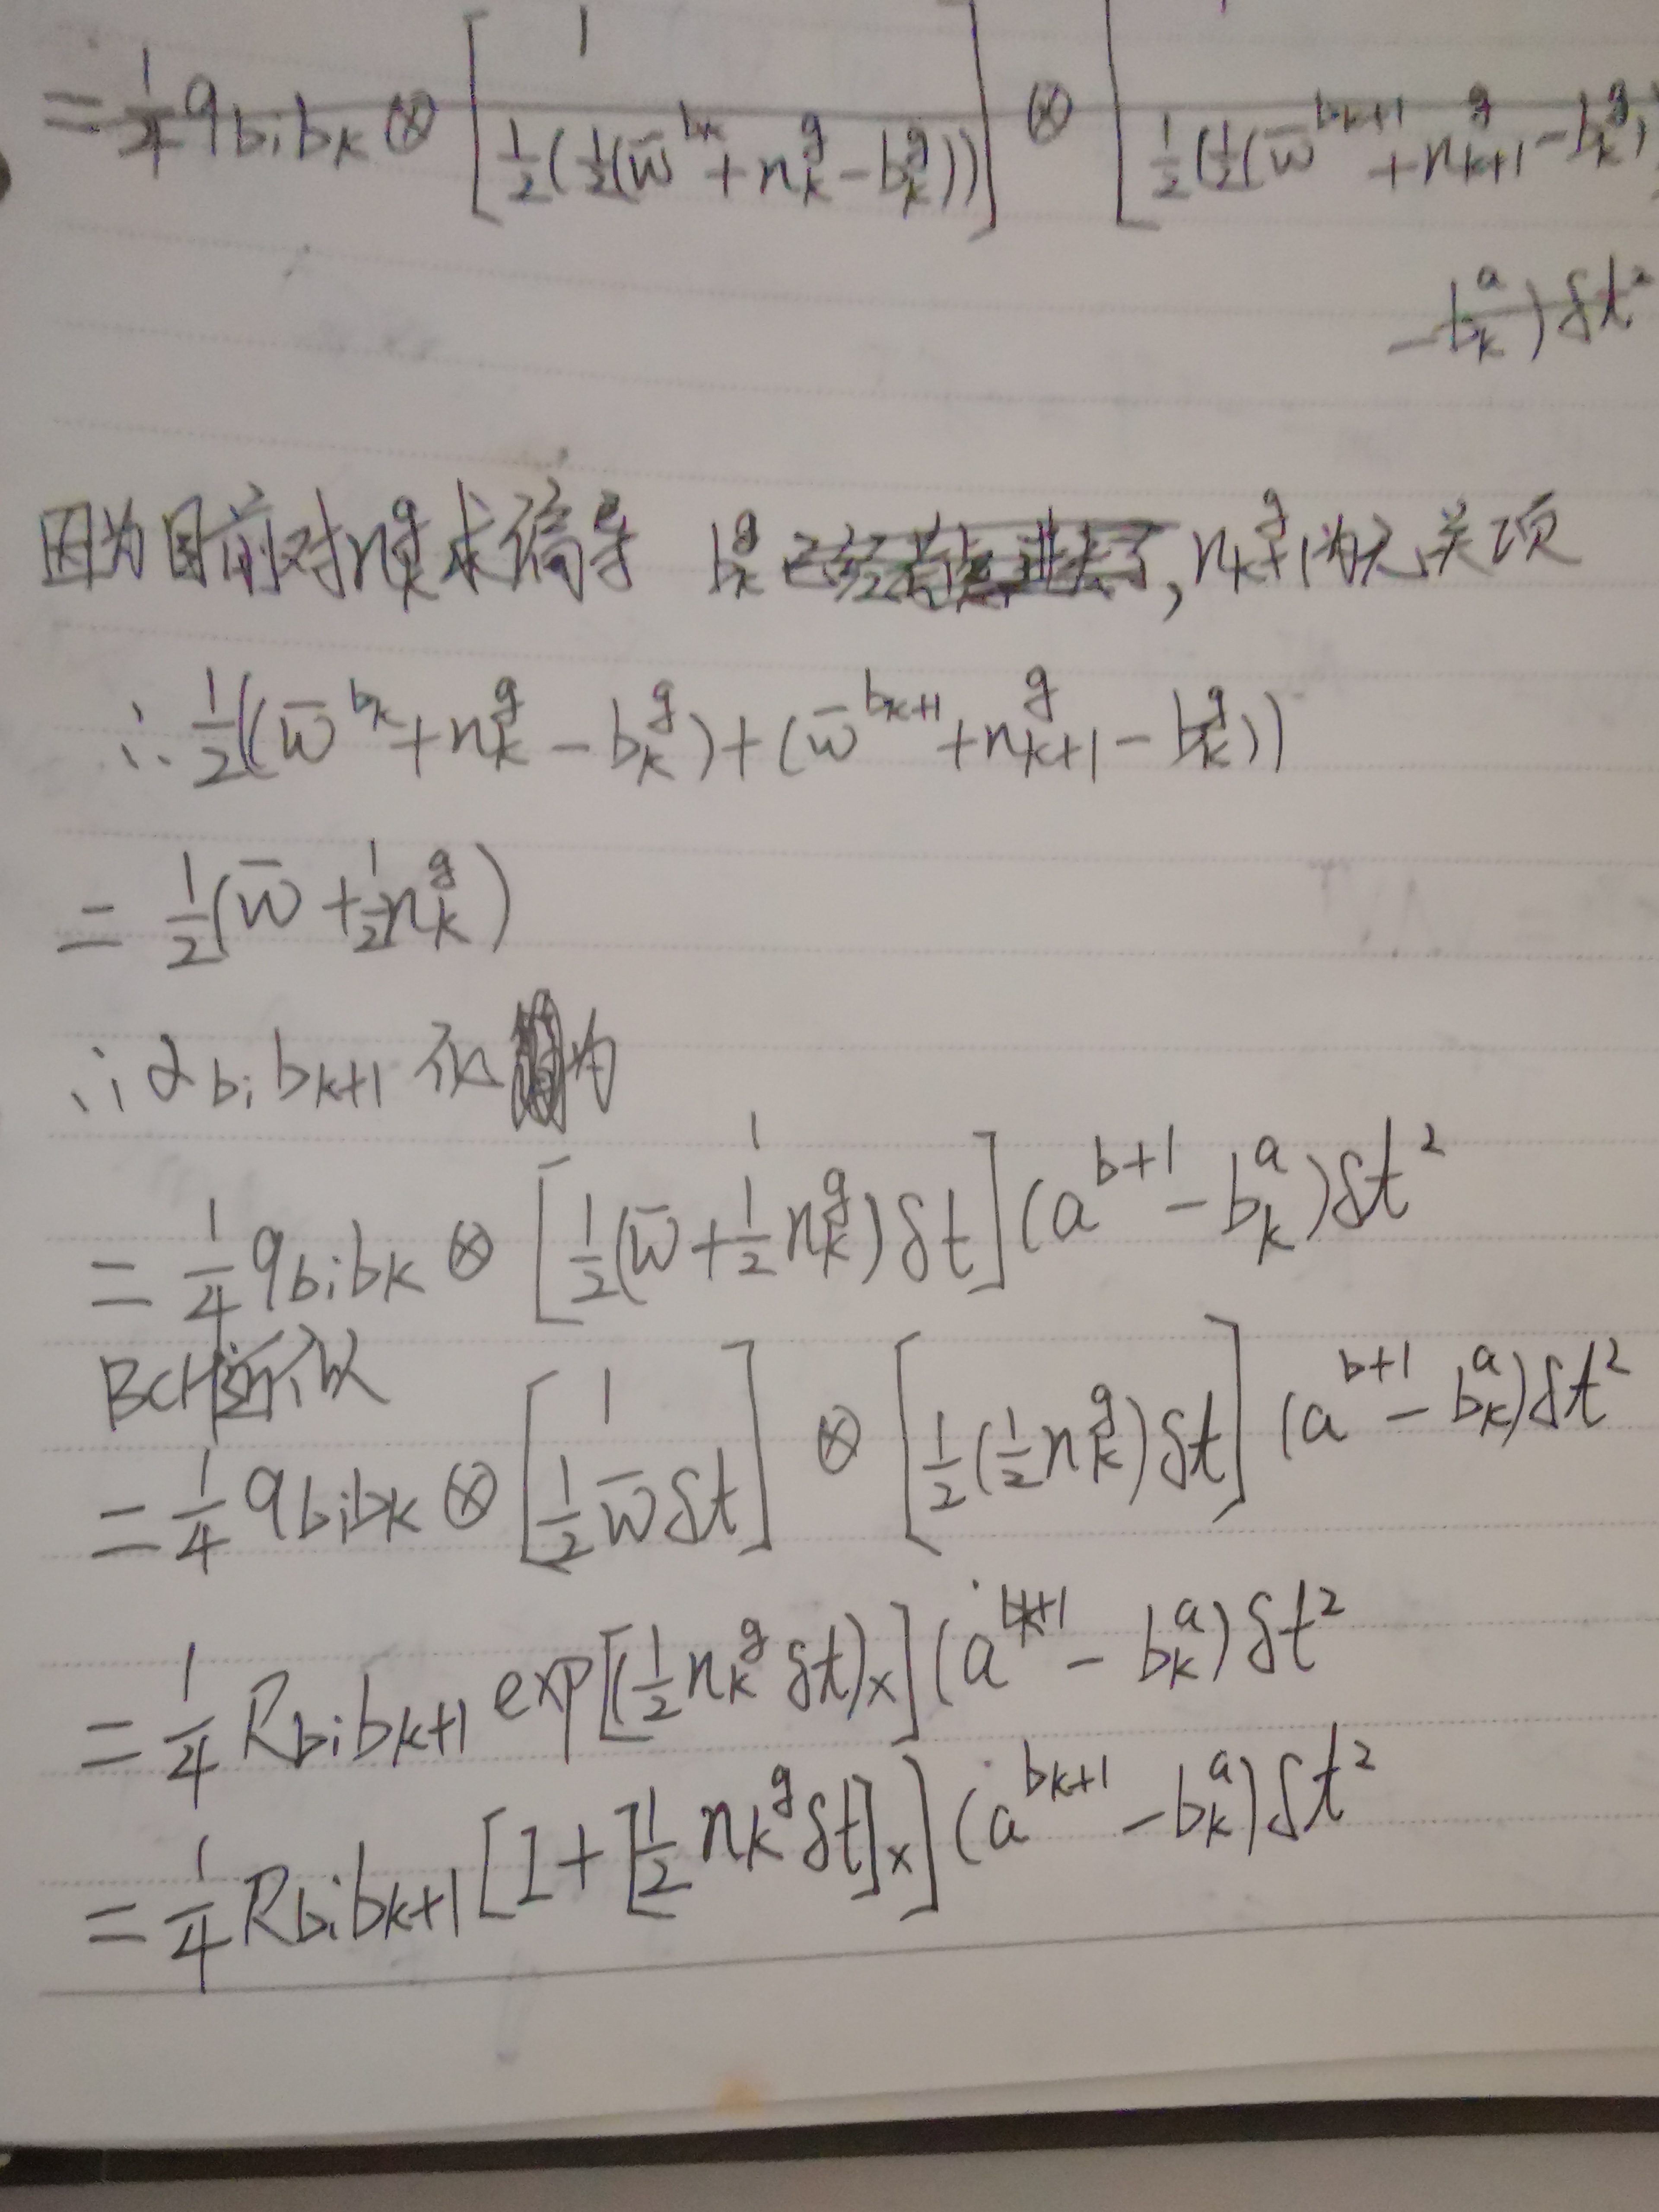 = 1/4 q_{b_i b_k} ⊗ [1; 1/2(1/2(w̄^{b_k} + n_k^g - b_k^g))] ⊗ [1/2(1/2(w̄^{b_{k+1}} + n_{k+1}^g - b_k^g)
- b_k^a) δt²
因为目前对 n_k^g 求偏导 b_k^g , n_{k+1}^g 为无关项
∴ 1/2((w̄^{b_k} + n_k^g - b_k^g) + (w̄^{b_{k+1}} + n_{k+1}^g - b_k^g))
= 1/2(w̄ + 1/2 n_k^g)
∴ α_{b_i b_{k+1}} 为
= 1/4 q_{b_i b_k} ⊗ [1; 1/2(w̄ + 1/2 n_k^g) δt] (a^{b+1} - b_k^a) δt²
BCH近似
= 1/4 q_{b_i b_k} ⊗ [1; 1/2 w̄ δt] ⊗ [1/2(1/2 n_k^g) δt] (a^{b+1} - b_k^a) δt²
= 1/4 R_{b_i b_{k+1}} exp[(1/2 n_k^g δt)_×] (a^{b_{k+1}} - b_k^a) δt²
= 1/4 R_{b_i b_{k+1}} [I + [1/2 n_k^g δt]_×] (a^{b_{k+1}} - b_k^a) δt²